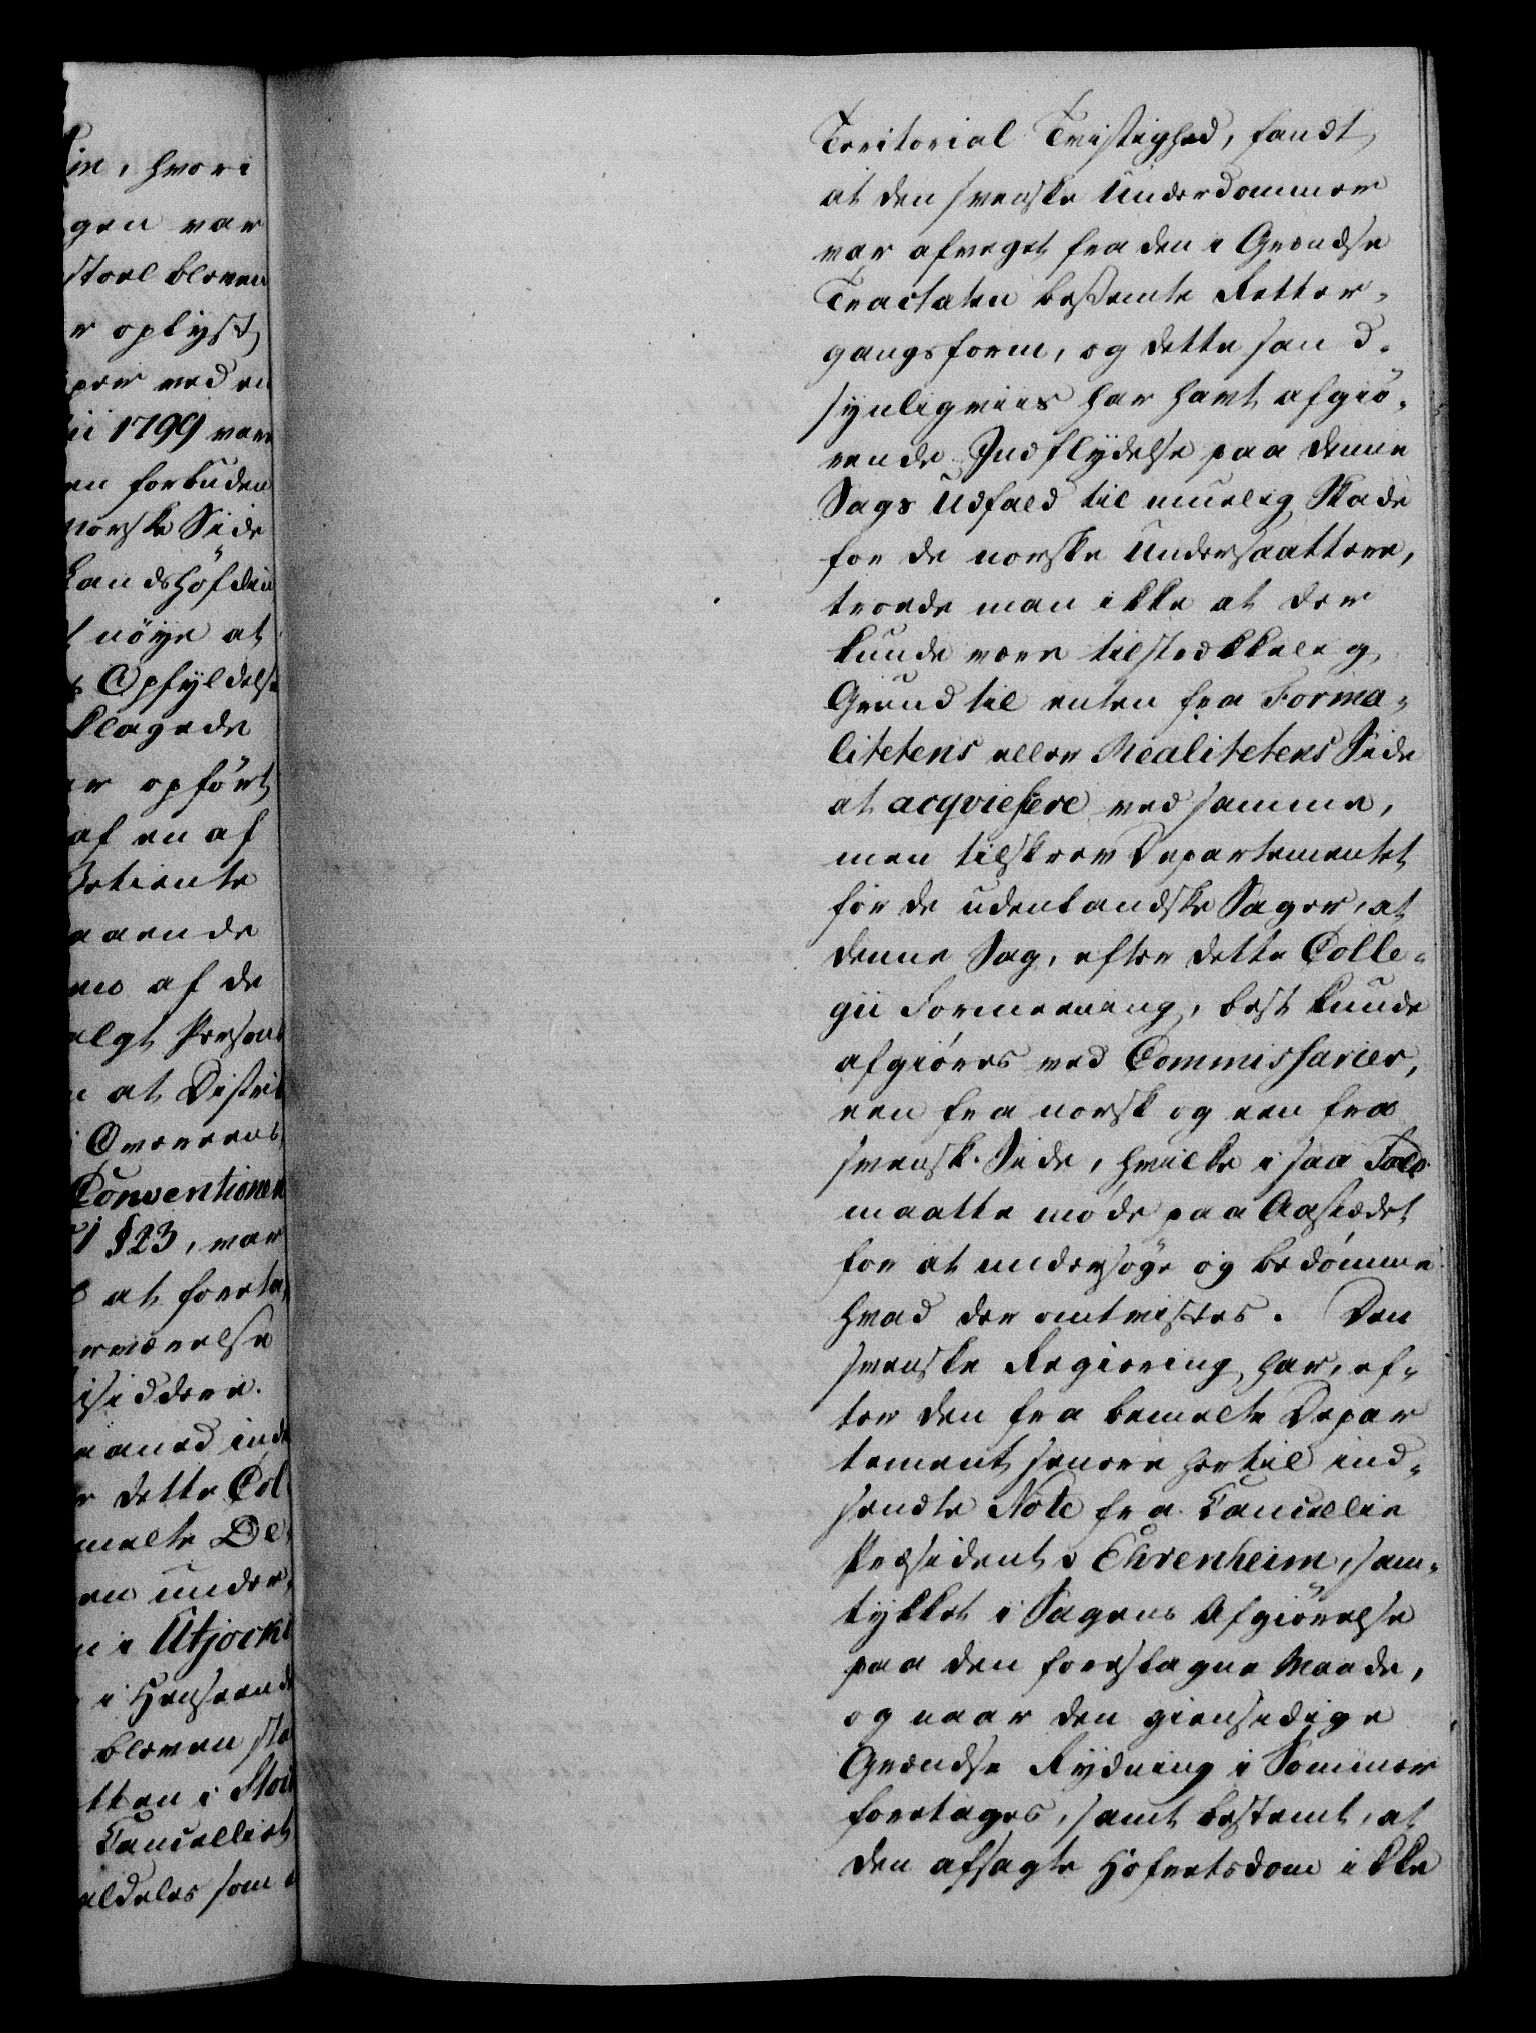 im, hvori
gen var
stoel bleven
r oplyst,
per ved en
ii 1799 var
en forbuden
norske Side
Landshöfdin
t nöye at
s Opfyldelse
klagede
er opfört
af en af
Betiente
aaende
en af de
algt Person
n at Distri
i Overeens
Conventionen
1 § 23, var
at foreta,
ærværelse
isiddere.
aaned inde
r dette Col
melte De
en under,
n i Utjocki
i Henseende
bleven sta
tten i Stoc
Cancelliet
aldeles som
Teritorial Tvistighed, fandt
at den svenske Underdommer
var afveget fra den i Grændse
Tractaten bestemte Retter-
gangsform, og dette sand-
synligviis har havt afgiö-
rende Indflydelse paa denne
Sags Udfald til muelig Skade
for de norske Undersaattere,
troede man ikke at der
kunde være tilstrækkelig
Grund til enten fra Forma-
litetens eller Realitetens Side
at acqviesere ved samme,
men tilskrev Departementet
for de udenlandske Sager, at
denne Sag, efter dette Colle-
gii Formeening, best kunde
afgiöres ved Commissarier,
een fra norsk og een fra
svensk Side, hvilke i saa Fald
maatte möde paa Aastædet
for at undersöge og bedömme
hvad der omtvistes. Den
svenske Regiering har, ef-
ter den fra bemelte Depar
tement senere hertil ind-
sendte Note fra Cancellie
Præsident v Ehrenheim, sam-
tykket i Sagens Afgiörelse
paa den foreslagne Maade,
og naar den giensidige
Grændse Rydning i Sommer
foretages, samt bestemt, at
den afsagte Höfretsdom ikke